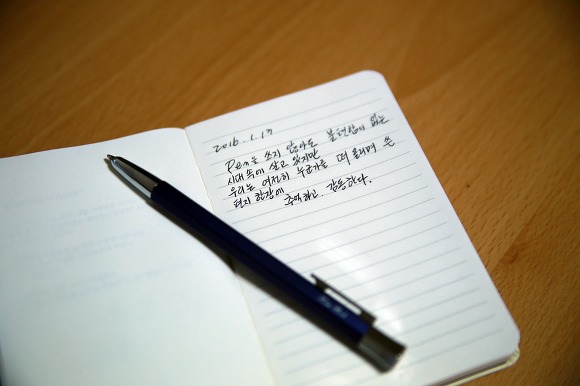 2016. 1. 17
Pen을 쓰지 않아도 불편함이 없는
시대속에 살고 있지만
우리는 여전히 누군가를 떠 올리며 쓴
편지 한장에 추억하고 감동한다.